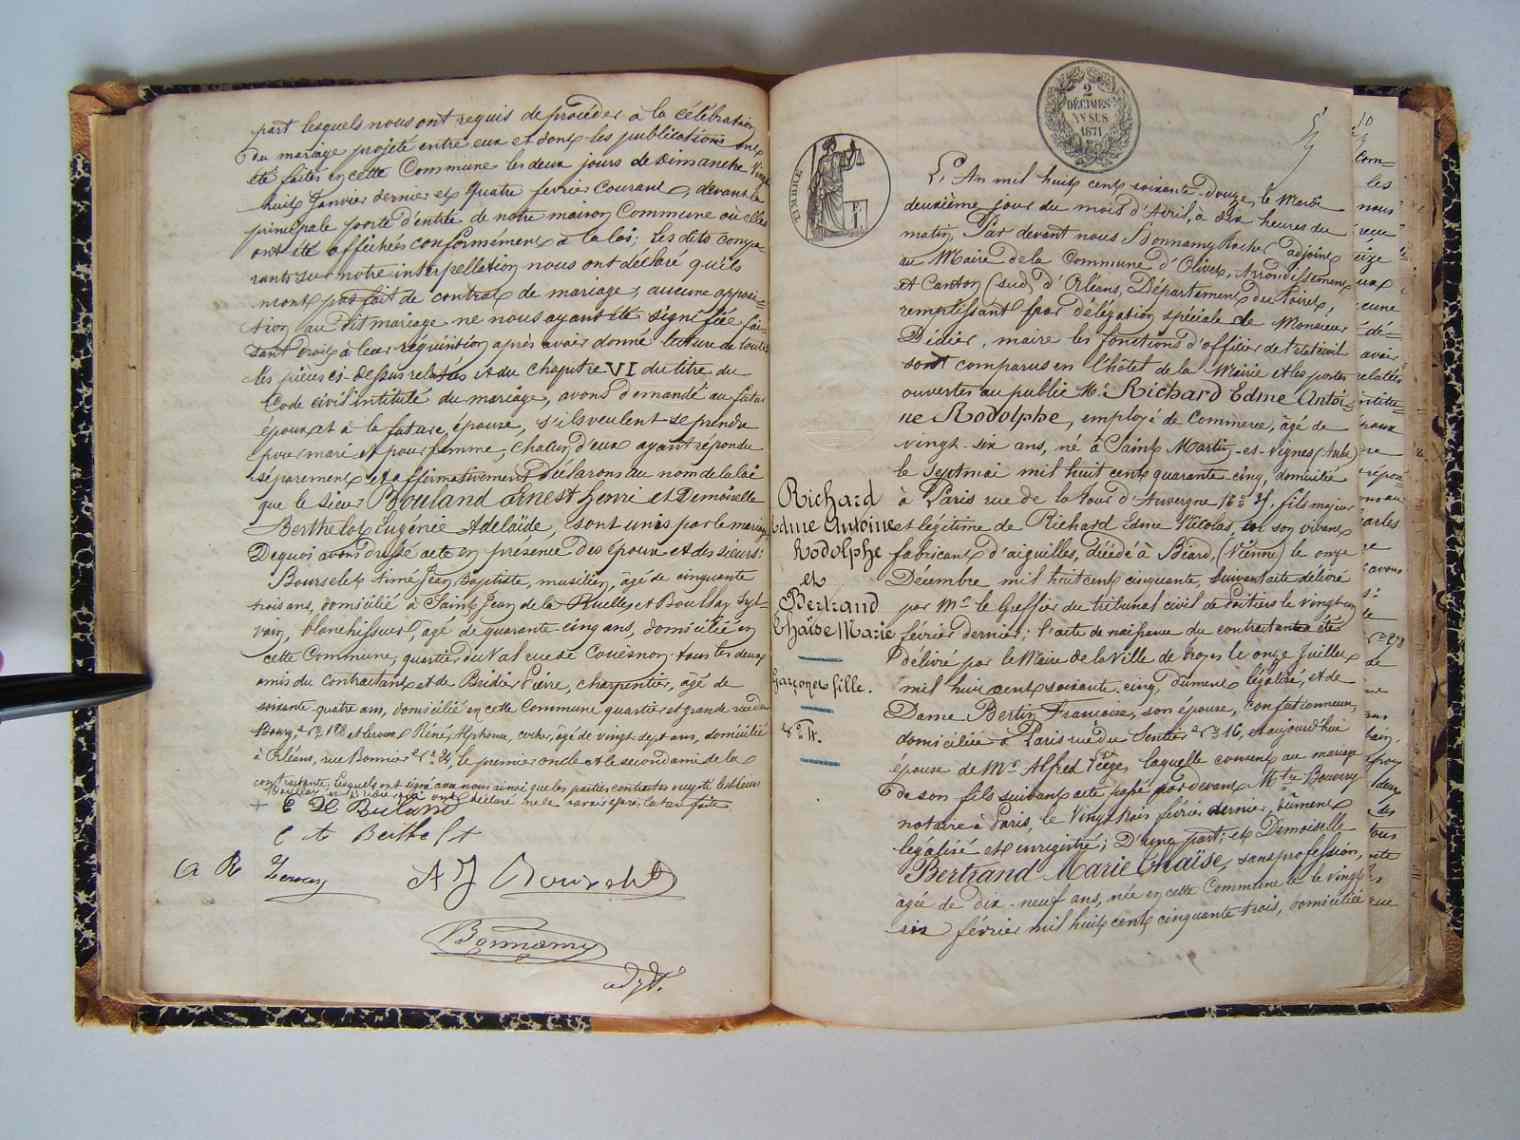 part lesquels nous ont requis de procéder à la célébration
du mariage projeté entre eux et dont les publications ont
été faites en cette Commune les deux jours de Dimanche Vingt
huit Janvier dernier et quatre février courant, devant la
principale porte d'entrée de notre maison Commune où elles
ont été affichées conformément à la loi; les dits compa-
rants sur notre interpellation nous ont déclaré qu'ils
n'ont pas fait de contrat de mariage; aucune opposi-
tion au dit mariage ne nous ayant été signifiée fai-
sant droit à leur réquisition après avoir donné lecture de toutes
les pièces ci-dessus relatées et du Chapitre VI du titre du
Code civil intitulé du mariage, avons demandé au futur
époux et à la future épouse, s'ils veulent se prendre
pour mari et pour femme, chacun d'eux ayant répondu
séparément et affirmativement Déclarons au nom de la loi
que le sieur Bouland Ernest Henri et Demoiselle
Berthelot Eugénie Adelaïde, sont unis par le mariage
De quoi avons dressé acte en présence des époux et des sieurs:
Bourselet Aimé Jean Baptiste, musicien, âgé de cinquante
trois ans, domicilié à Saint Jean de la Ruelle, et Boullay Syl-
vain, blanchisseur, âgé de quarante cinq ans, domicilié en
cette Commune, quartier du Val rue de Couesnon tous les deux
amis du contractant et de Bridier Pierre, charpentier, âgé de
soixante quatre ans, domicilié en cette Commune quartier et grande rue du
Bourg, n° 188 et Leroux Réné, Alphonse, cocher, âgé de vingt sept ans, domicilié
à Orléans, rue Bannier n° 34, le premier oncle et le second ami de la
contractante, lesquels ont signé avec nous ainsi que les parties contractantes excepté les sieurs
Boullay et Bridier qui ont déclaré ne le savoir après lecture faite
E H Bouland
E A Berthelot
A R Leroux
A J Bourselet
Bonnamy
adjt.
TIMBRE
2
DÉCIMES
EN SUS
1871
L'An mil huit cent soixante-douze, le Mardi
deuxième jour du mois d'Avril, à dix heures du
matin, Par devant nous Bonnamy Roch, adjoint
au Maire de la Commune d'Olivet, Arrondissement
et Canton (sud) d'Orléans, Département du Loiret,
remplissant par délégation spéciale de Monsieur
Didier, maire les fonctions d'officier de l'état civil
sont comparus en l'hôtel de la Mairie et les portes
ouvertes au public Mr Richard Edme Antoi-
ne Rodolphe, employé de Commerce, âgé de
vingt-six ans, né à Saint Martin-es-Vignes (Aube)
le sept mai mil huit cent quarante-cinq, domicilié
à Paris rue de la Tour d'Auvergne, n° 31, fils majeur
et légitime de Richard Edme Nicolas, en son vivant
fabricant d'aiguilles, décédé à Biard, (Vienne) le onze
Décembre mil huit cent cinquante, suivant acte délivré
par Mr le Greffier du tribunal civil de Poitiers le vingt un
février dernier; l'acte de naissance du contractant a été
délivré par le Maire de la Ville de Troyes le onze Juillet
mil huit cent soixante-cinq, dûment légalisé, et de
Dame Bertin Françoise, son épouse, confectionneuse,
domiciliée à Paris rue du Sentier n° 16, et aujourd'hui
épouse de Mr Alfred Piège, laquelle consent au mariage
de son fils suivant acte passé par devant Mtre Bouvry
notaire à Paris, le Vingt trois février dernier, dûment
légalisé et enregistré; D'une part; et Demoiselle
Bertrand Marie Thaïse, sans profession,
âgée de dix-neuf ans, née en cette Commune le vingt
six février mil huit cent cinquante trois, domiciliée
Richard
Edme Antoine
Rodolphe
et
Bertrand
Thaïse Marie
Garçon et fille.
n° 11.